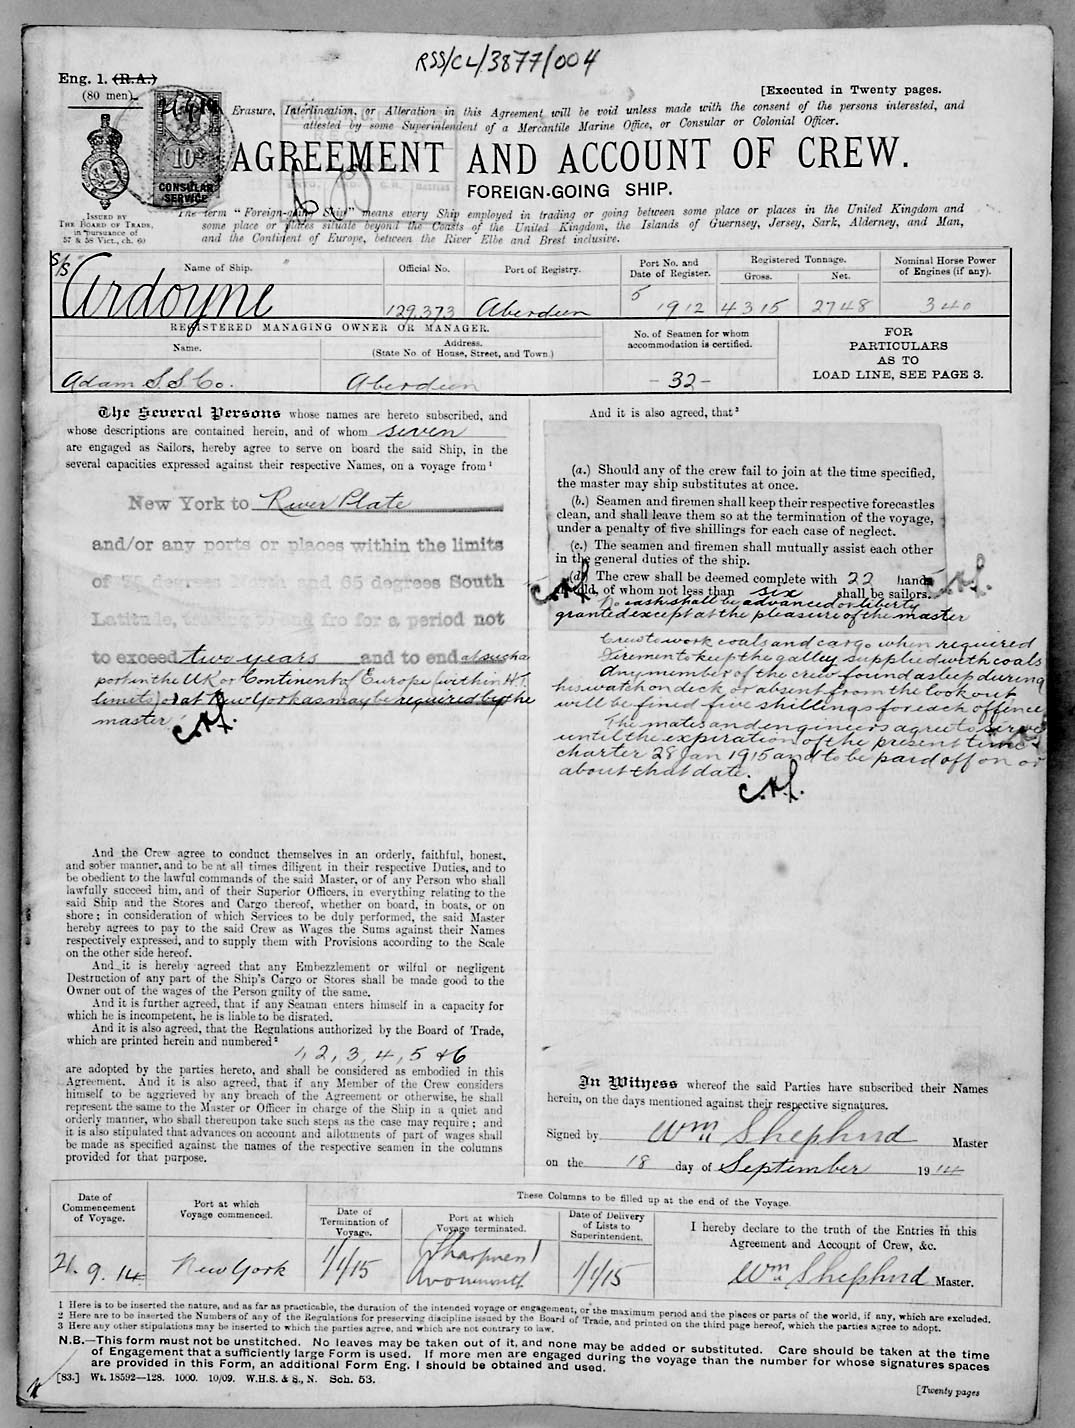 RSS/CL/3877/004
Eng. 1. (R.A.)
(80 men)
[Executed in Twenty pages.
Erasure, Interlineation, or Alteration in this Agreement will be void unless made with the consent of the persons interested, and
attested by some Superintendent of a Mercantile Marine Office, or Consular or Colonial Officer.
10
CONSULAR
SERVICE
AGREEMENT AND ACCOUNT OF CREW.
FOREIGN-GOING SHIP.
ISSUED BY
THE BOARD OF TRADE,
in pursuance of
57 & 58 Vict., ch. 60
The term "Foreign-going Ship" means every Ship employed in trading or going between some place or places in the United Kingdom and
some place or places situate beyond the Coasts of the United Kingdom, the Islands of Guernsey, Jersey, Sark, Alderney, and Man,
and the Continent of Europe, between the River Elbe and Brest inclusive.
Name of Ship. Official No. Port of Registry. Port No. and Date of Register. Registered Tonnage. Gross. Net. Nominal Horse Power of Engines (if any).
S/S Ardoyne 129,373 Aberdeen 5 1912 4315 2748 340
REGISTERED MANAGING OWNER OR MANAGER.
Name. Address. (State No. of House, Street, and Town.) No. of Seamen for whom accommodation is certified.
FOR PARTICULARS AS TO LOAD LINE, SEE PAGE 3.
Adam S.S. Co. Aberdeen - 32 -
The Several Persons whose names are hereto subscribed, and
whose descriptions are contained herein, and of whom seven
are engaged as Sailors, hereby agree to serve on board the said Ship, in the
several capacities expressed against their respective Names, on a voyage from¹
New York to River Plate
and/or any ports or places within the limits
of 75 degrees North and 65 degrees South
Latitude, trading to and fro for a period not
to exceed two years and to end at such a
port in the UK or Continent of Europe (within H.T.
limits) or at New York as may be required by the
master
C.A.L.
And it is also agreed, that³
(a.) Should any of the crew fail to join at the time specified,
the master may ship substitutes at once.
(b.) Seamen and firemen shall keep their respective forecastles
clean, and shall leave them so at the termination of the voyage,
under a penalty of five shillings for each case of neglect.
(c.) The seamen and firemen shall mutually assist each other
in the general duties of the ship.
(d.) The crew shall be deemed complete with 22 hands
all told, of whom not less than six shall be sailors.
No cash shall be advanced or liberty
granted except at the pleasure of the master
Crew to work coals and cargo when required
Firemen to keep the galley supplied with coals
Any member of the crew found asleep during
his watch on deck or absent from the lookout
will be fined five shillings for each offence
The mates and engineers agree to serve
until the expiration of the present time
charter 28 Jan 1915 and to be paid off on or
about that date.
C.A.L.
And the Crew agree to conduct themselves in an orderly, faithful, honest,
and sober manner, and to be at all times diligent in their respective Duties, and to
be obedient to the lawful commands of the said Master, or of any Person who shall
lawfully succeed him, and of their Superior Officers, in everything relating to the
said Ship and the Stores and Cargo thereof, whether on board, in boats, or on
shore; in consideration of which Services to be duly performed, the said Master
hereby agrees to pay to the said Crew as Wages the Sums against their Names
respectively expressed, and to supply them with Provisions according to the Scale
on the other side hereof.
And it is hereby agreed that any Embezzlement or wilful or negligent
Destruction of any part of the Ship's Cargo or Stores shall be made good to the
Owner out of the wages of the Person guilty of the same.
And it is further agreed, that if any Seaman enters himself in a capacity for
which he is incompetent, he is liable to be disrated.
And it is also agreed, that the Regulations authorized by the Board of Trade,
which are printed herein and numbered²
1, 2, 3, 4, 5 & 6
are adopted by the parties hereto, and shall be considered as embodied in this
Agreement. And it is also agreed, that if any Member of the Crew considers
himself to be aggrieved by any breach of the Agreement or otherwise, he shall
represent the same to the Master or Officer in charge of the Ship in a quiet and
orderly manner, who shall thereupon take such steps as the case may require; and
it is also stipulated that advances on account and allotments of part of wages shall
be made as specified against the names of the respective seamen in the columns
provided for that purpose.
In Witness whereof the said Parties have subscribed their Names
herein, on the days mentioned against their respective signatures.
Signed by Wm Shepherd Master
on the 18 day of September 1914
These Columns to be filled up at the end of the Voyage.
Date of Commencement of Voyage. Port at which Voyage commenced. Date of Termination of Voyage. Port at which Voyage terminated. Date of Delivery of Lists to Superintendent. I hereby declare to the truth of the Entries in this Agreement and Account of Crew, &c.
21.9.14 New York 1/1/15 Sharpness / Avonmouth 1/1/15 Wm Shepherd Master.
1 Here is to be inserted the nature, and as far as practicable, the duration of the intended voyage or engagement, or the maximum period and the places or parts of the world, if any, which are excluded.
2 Here are to be inserted the Numbers of any of the Regulations for preserving discipline issued by the Board of Trade, and printed on the third page hereof, which the parties agree to adopt.
3 Here any other stipulations may be inserted to which the parties agree, and which are not contrary to law.
N.B.—This form must not be unstitched. No leaves may be taken out of it, and none may be added or substituted. Care should be taken at the time
of Engagement that a sufficiently large Form is used. If more men are engaged during the voyage than the number for whose signatures spaces
are provided in this Form, an additional Form Eng. 1 should be obtained and used.
[83.] Wt. 18592—128. 1000. 10/09. W.H.S. & S., N. Sch. 53.
[Twenty pages